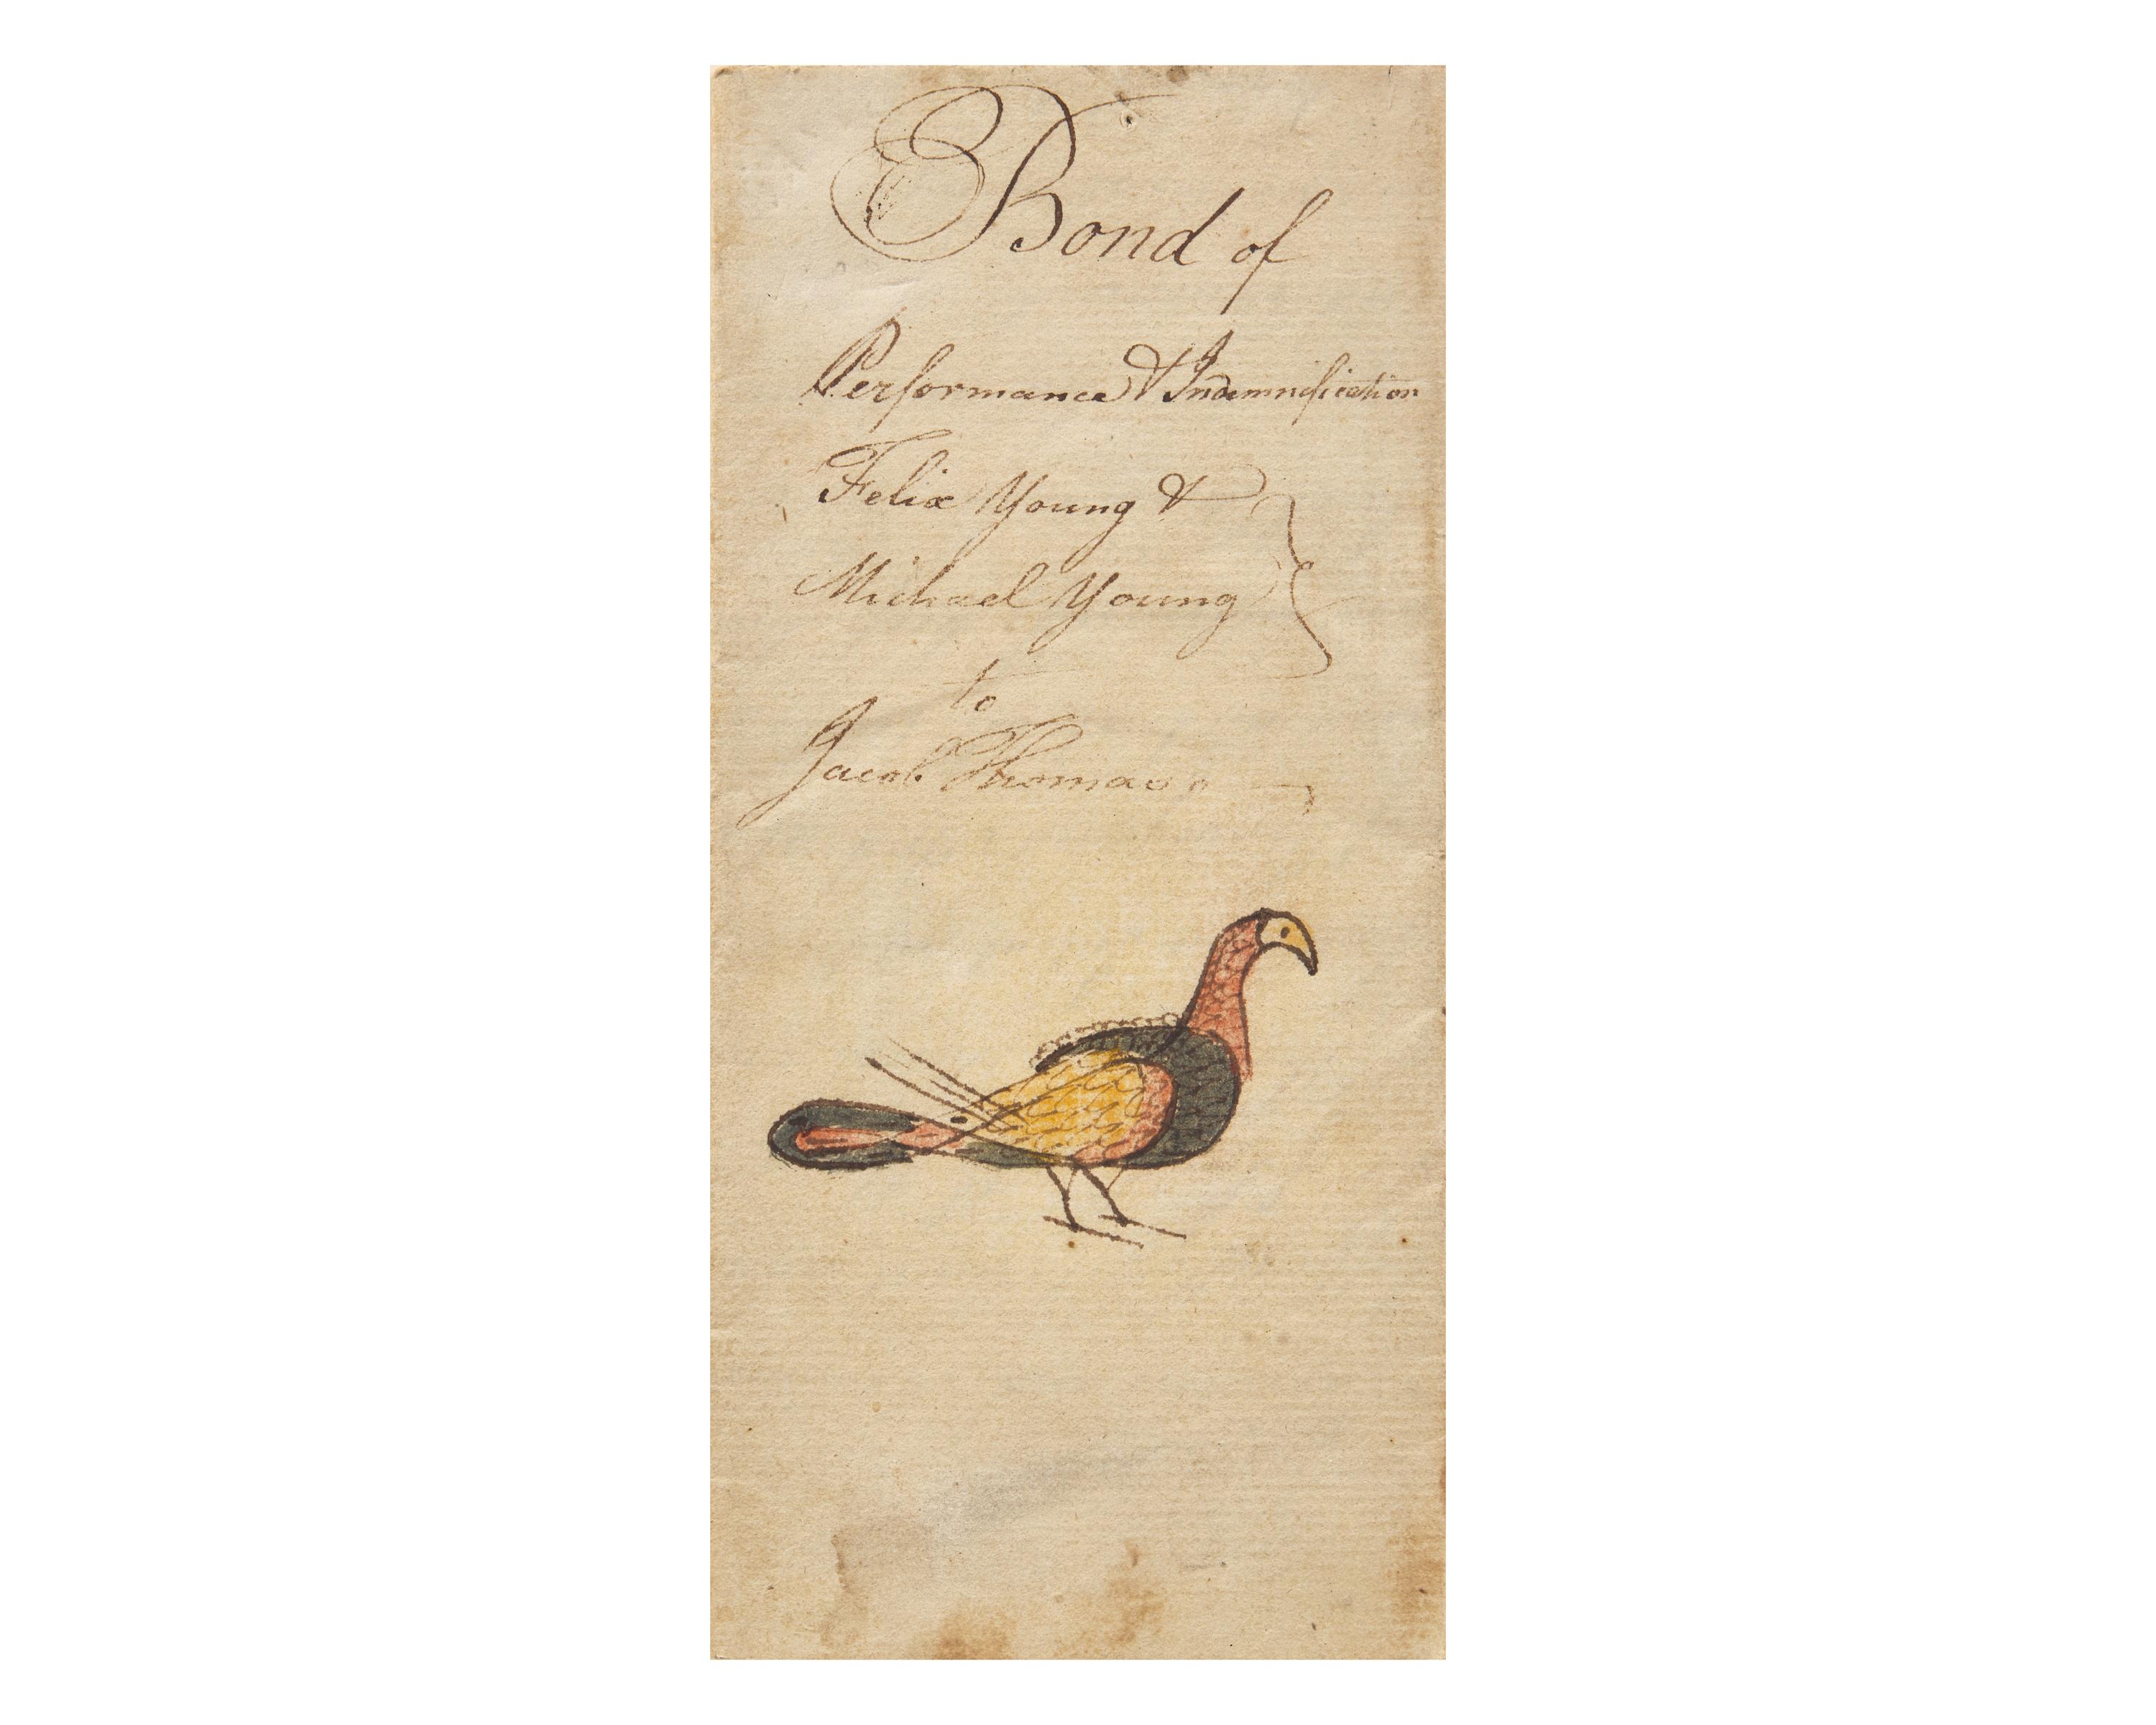 Bond of
Performance & Indemnification
Felix Young &
Michael Young
to
Jacob Thomas